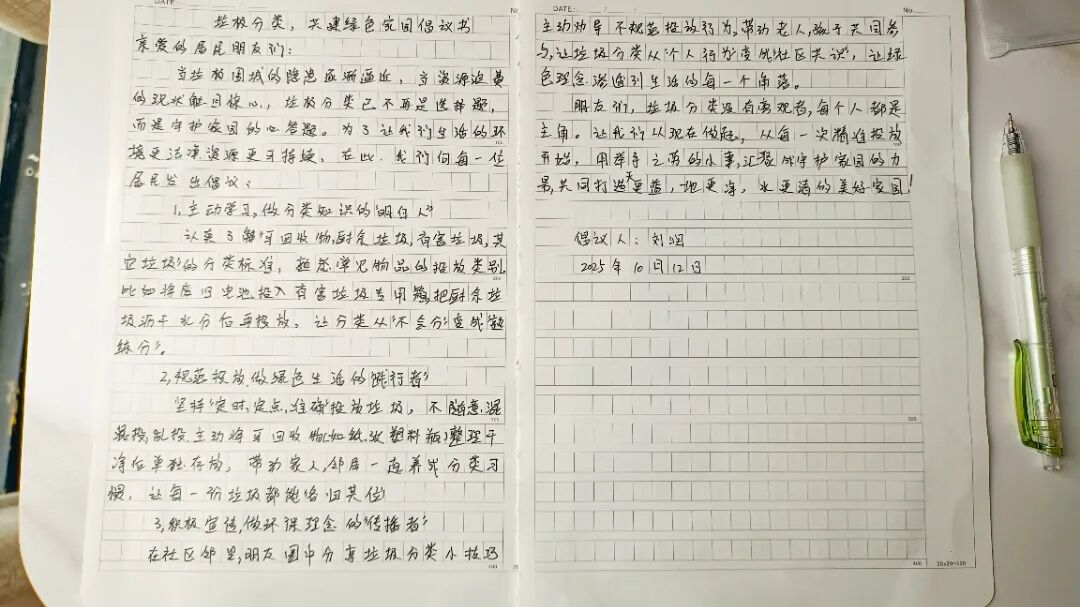 DATE:
No
垃圾分类，共建绿色家园倡议书
亲爱的居民朋友们：
当垃圾围城的隐患逐渐逼近，当资源浪费
的现状触目惊心，垃圾分类已不再是选择题，
而是守护家园的必答题。为了让我们生活的环
境更洁净资源更可持续，在此，我们向每一位
居民发出倡议：
1.主动学习，做分类知识的“明白人”
认真了解“可回收物，厨余垃圾，有害垃圾，其
它垃圾”的分类标准，熟悉常见物品的投放类别，
比如将废旧电池投入有害垃圾专用，把厨余垃
圾沥干水分后再投放，让分类从“不会分”变成“熟
练分”。
2，规范投放，做绿色生活的“践行者”
坚持“定时，定点，准确”投放垃圾，不随意混
投，乱投，主动将可回收物（如纸张，塑料瓶）整理干
净后单独存放，带动家人，邻居一起养成分类习
惯，让每一份垃圾都能各归其位
3，积极宣传，做环保理念的“传播者”
在社区邻里，朋友圈中分享垃圾分类小技巧
100
200
300
400
DATE:
No.
主动劝导不规范投放行为，带动老人，孩子共同参
与，让垃圾分类从“个人行为”变成“社区共识”，让绿
色理念渗透到生活的每一个角落。
朋友们，垃圾分类没有旁观者，每个人都是
主角。让我们从现在做起，从每一次精准投放
开始，用举手之劳的小事，汇聚成守护家园的力
量，共同打造天更蓝，地更净，水更清的美好家园！
倡议人：刘润
2025年10月12日
100
200
300
400
20x20=400